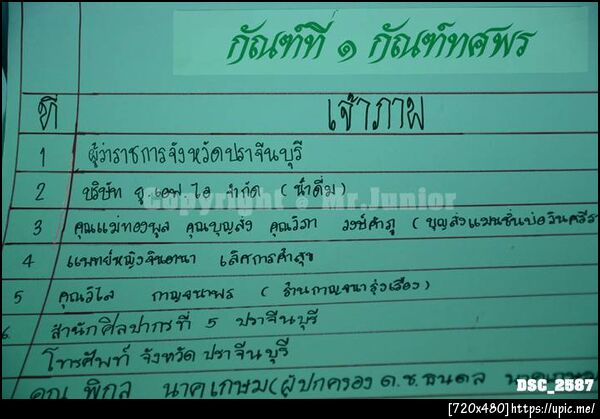 กัณฑ์ที่ ๑ กัณฑ์ทศพร
ที่ เจ้าภาพ
1 ผู้ว่าราชการจังหวัดปราจีนบุรี
2 บริษัท ยู เอฟ ไอ จำกัด ( น้ำดื่ม )
Copyright © Mr.Junior
3 คุณแม่ทองพูล คุณบุญส่ง คุณวิภา วงษ์คำภู ( บุญส่งแมนชั่นบ่อวินศรีรา
4 แพทย์หญิงจินดานา เลิศการค้าสุข
5 คุณวิไล กาญจนาพร ( ร้านกาญจนารุ่งเรือง )
6. สำนักศิลปากรที่ 5 ปราจีนบุรี
โทรศัพท์ จังหวัด ปราจีนบุรี
คุณ พิกุล นาคเกษม (ผู้ปกครอง ด.ช. ธนดล นาคเกษม
DSC_2587
[720x480]https://upic.me/